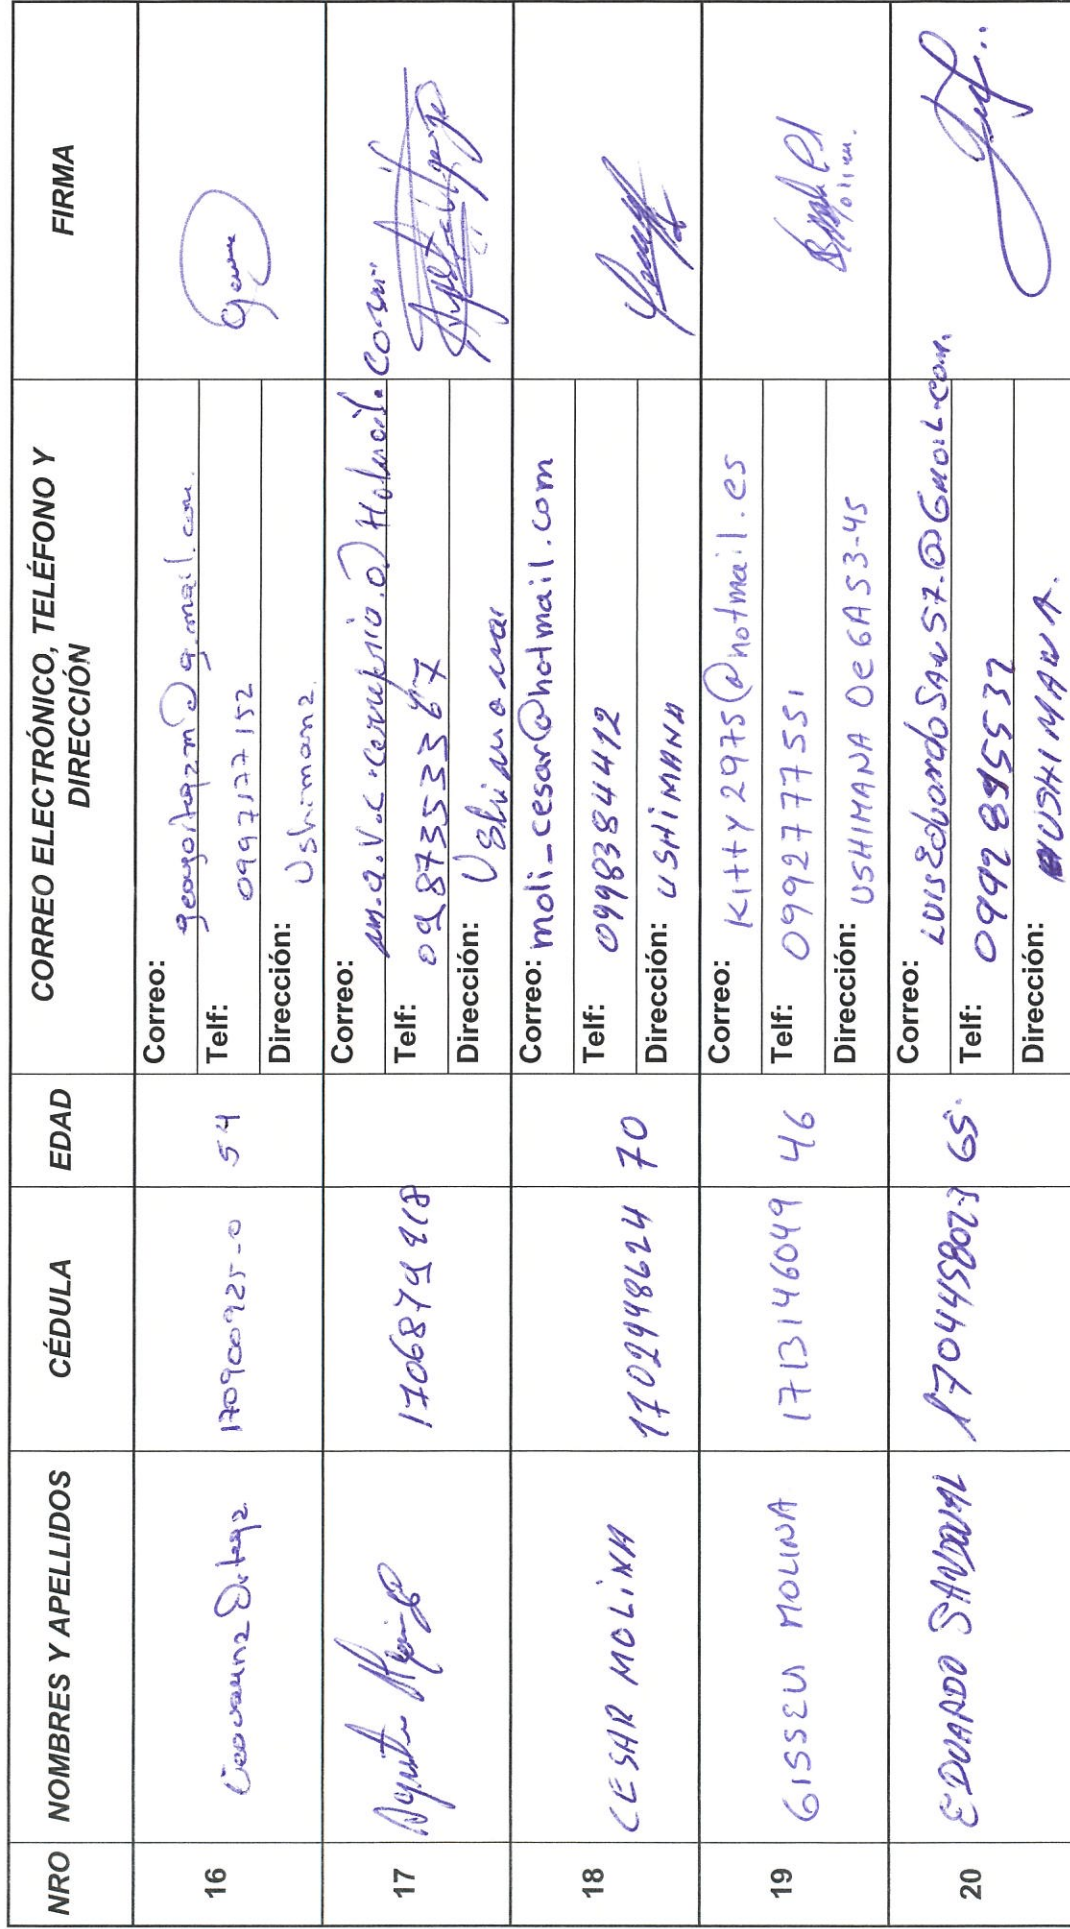 NRO NOMBRES Y APELLIDOS CÉDULA EDAD CORREO ELECTRÓNICO, TELÉFONO Y DIRECCIÓN FIRMA
16 Geovanna Ortega 170900925-0 54
Correo: geovortegam@g.mail.com.
Telf: 0997177152
Dirección: Ushimana
17 1706879218
Correo:
Telf: 0987353367
Dirección: Ushimana
18 CESAR MOLINA 1702948624 70
Correo: moli_cesar@hotmail.com
Telf: 0998384412
Dirección: USHIMANA
19 GISSELA MOLINA 1713146049 46
Correo: Kitty2975@hotmail.es
Telf: 0992777551
Dirección: USHIMANA Oe6A S3-45
20 EDUARDO SANDOVAL 170445802-3 65.
Correo: LUISEduardoSAN57.@GMAIL.com.
Telf: 0992895532
Dirección: USHIMANA.